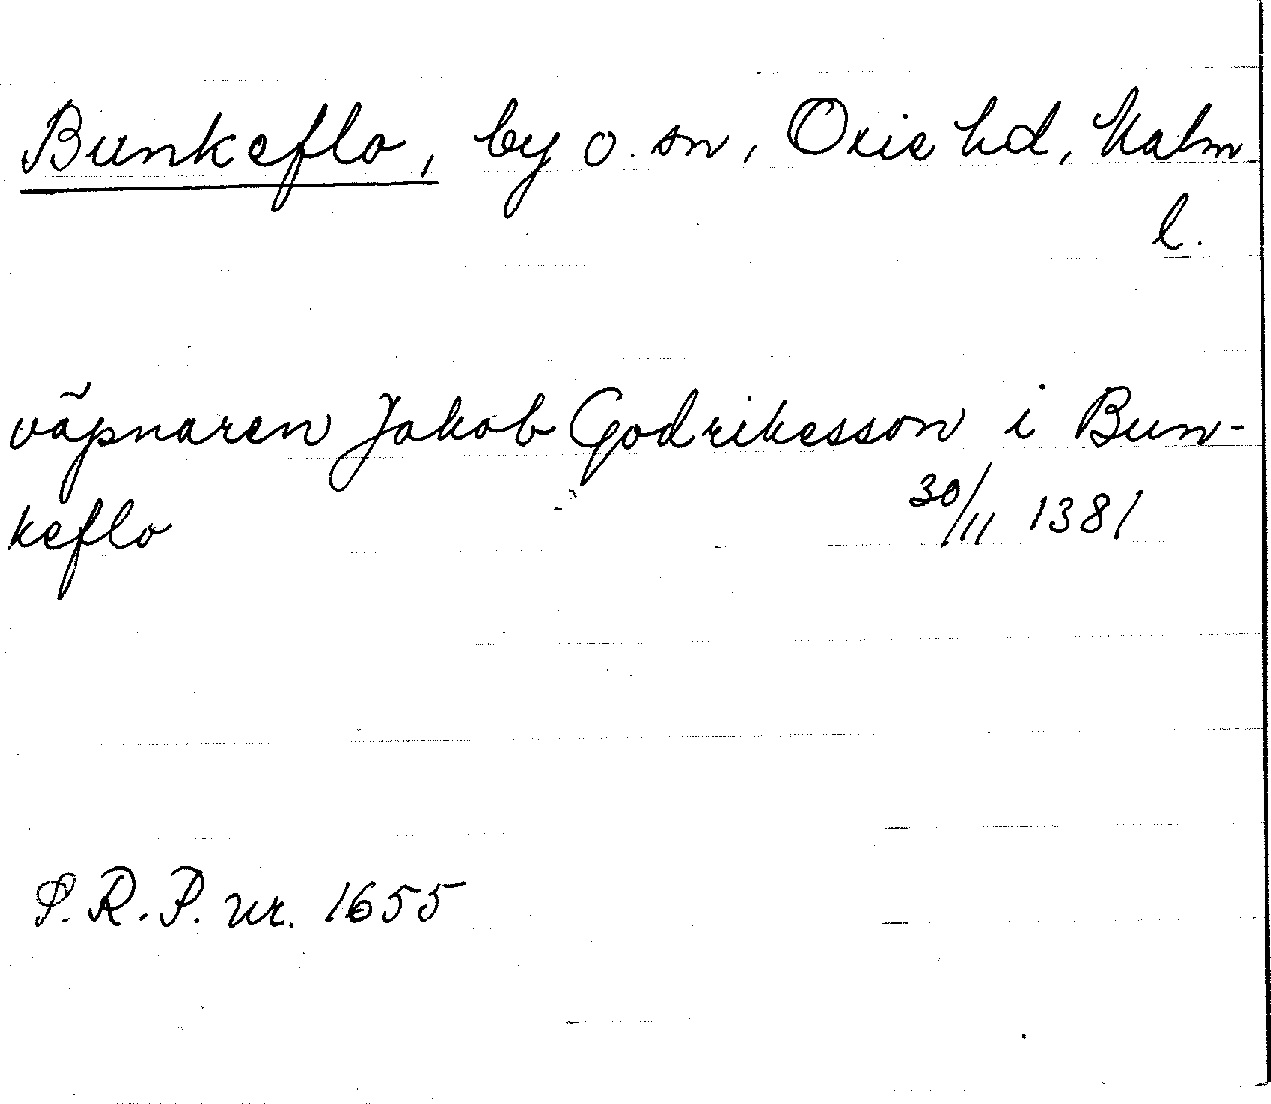 Bunkeflo, by o. sn, Oxie hd, Malm.
l.
väpnaren Jakob Godrikesson i Bun-
keflo 30/11 1381
S.R.P. nr. 1655